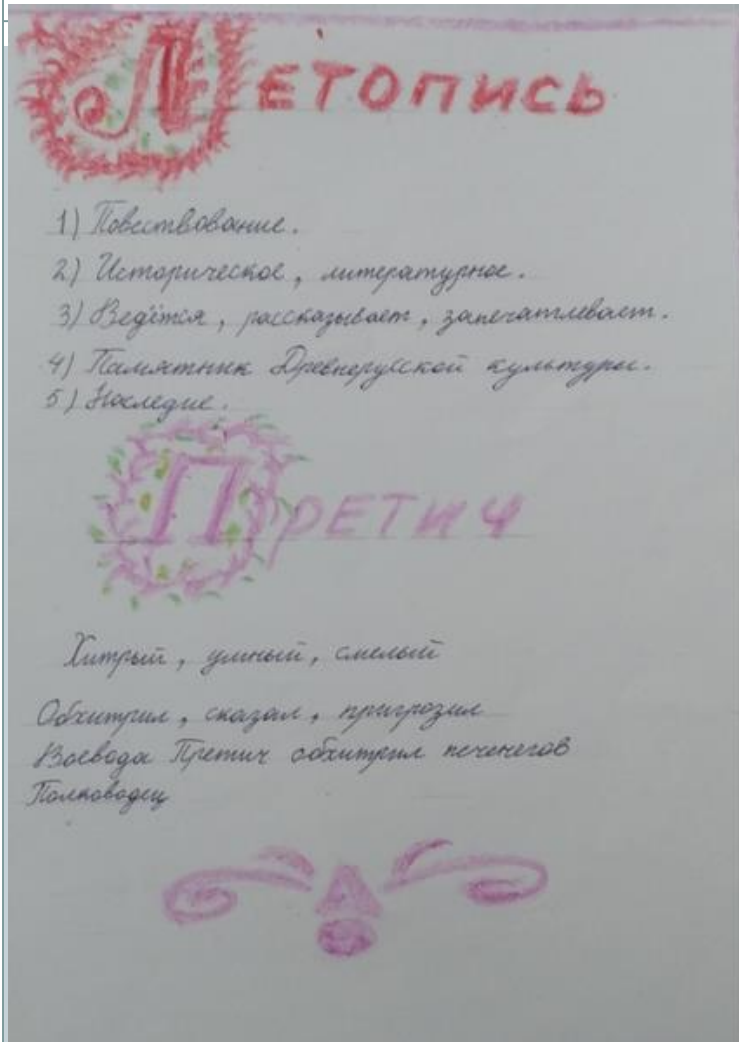 Летопись
1) Повествование.
2) Историческое, литературное.
3) Ведётся, рассказывает, запечатлевает.
4) Памятник Древнерусской культуры.
5) Наследие.
Претич
Хитрый, умный, смелый
Обхитрил, сказал, пригрозил
Воевода Претич обхитрил печенегов
Полководец